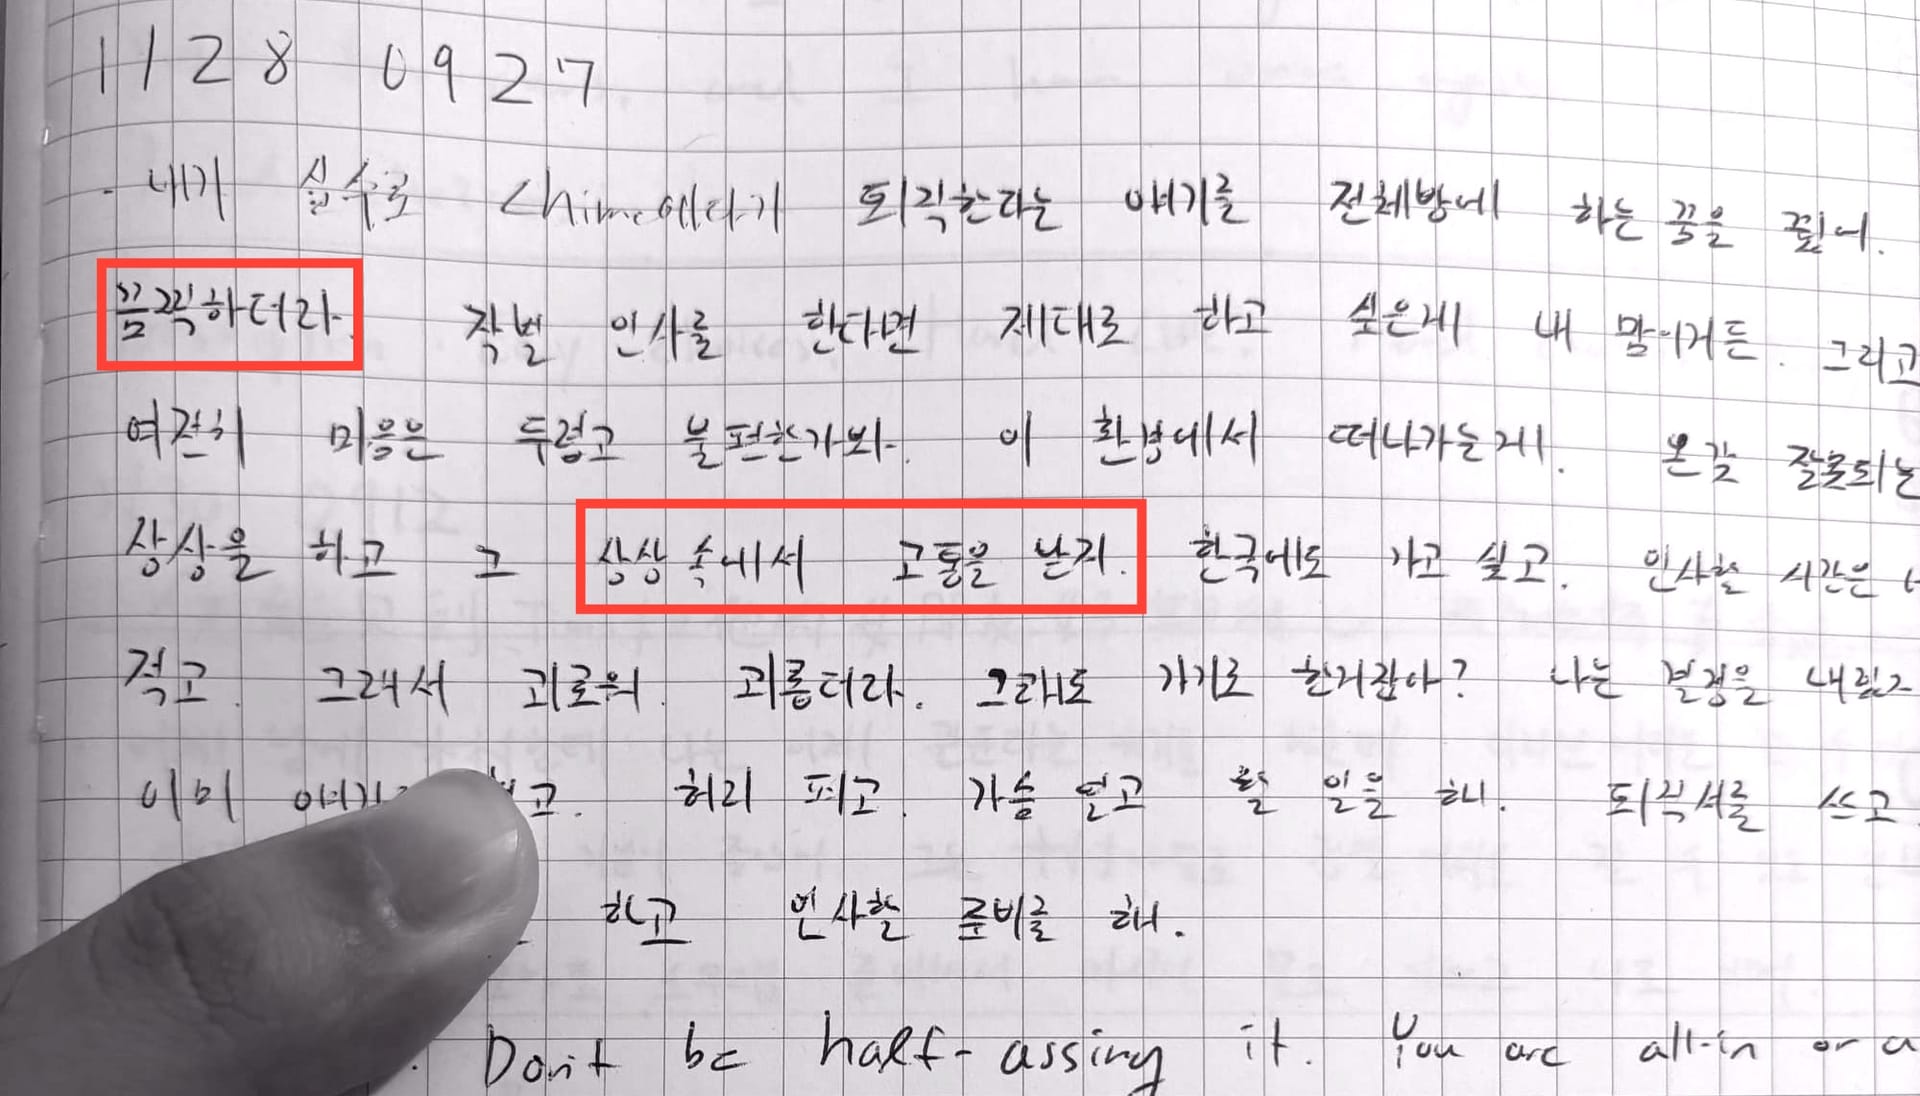 1128 0927
- 내가 실수로 Chime에다가 퇴직한다는 얘기를 전체방에 하는 꿈을 꿨어.
끔찍하더라. 작별 인사를 한다면 제대로 하고 싶은게 내 맘이거든. 그리고
여전히 마음은 두렵고 불편한가봐. 이 환경에서 떠나가는게. 온갖 잘못되는
상상을 하고 그 상상 속에서 고통을 받지. 한국에도 가고 싶고. 인사할 시간은
적고. 그래서 괴로워. 괴롭더라. 그래도 가기로 한거잖아? 나는 결정을
이미 허리 펴고. 가슴 펴고 할 일을 해. 퇴직서를 쓰고
하고 인사할 준비를 해.
Don't be half-assing it. You are all-in or